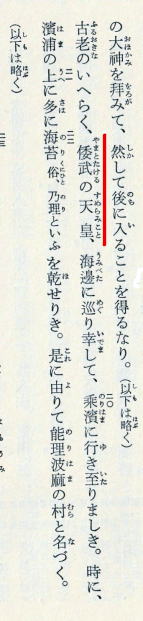 の大神を拜みて、然して後に入ることを得るなり。（以下は略く）
古老のいへらく、倭武の天皇、海邊に巡り幸して、乘濱に行き至りましき。時に、
濱浦の上に多に海苔 俗、乃理といふ を乾せりき。是に由りて能理波麻の村と名づく。
（以下は略く）